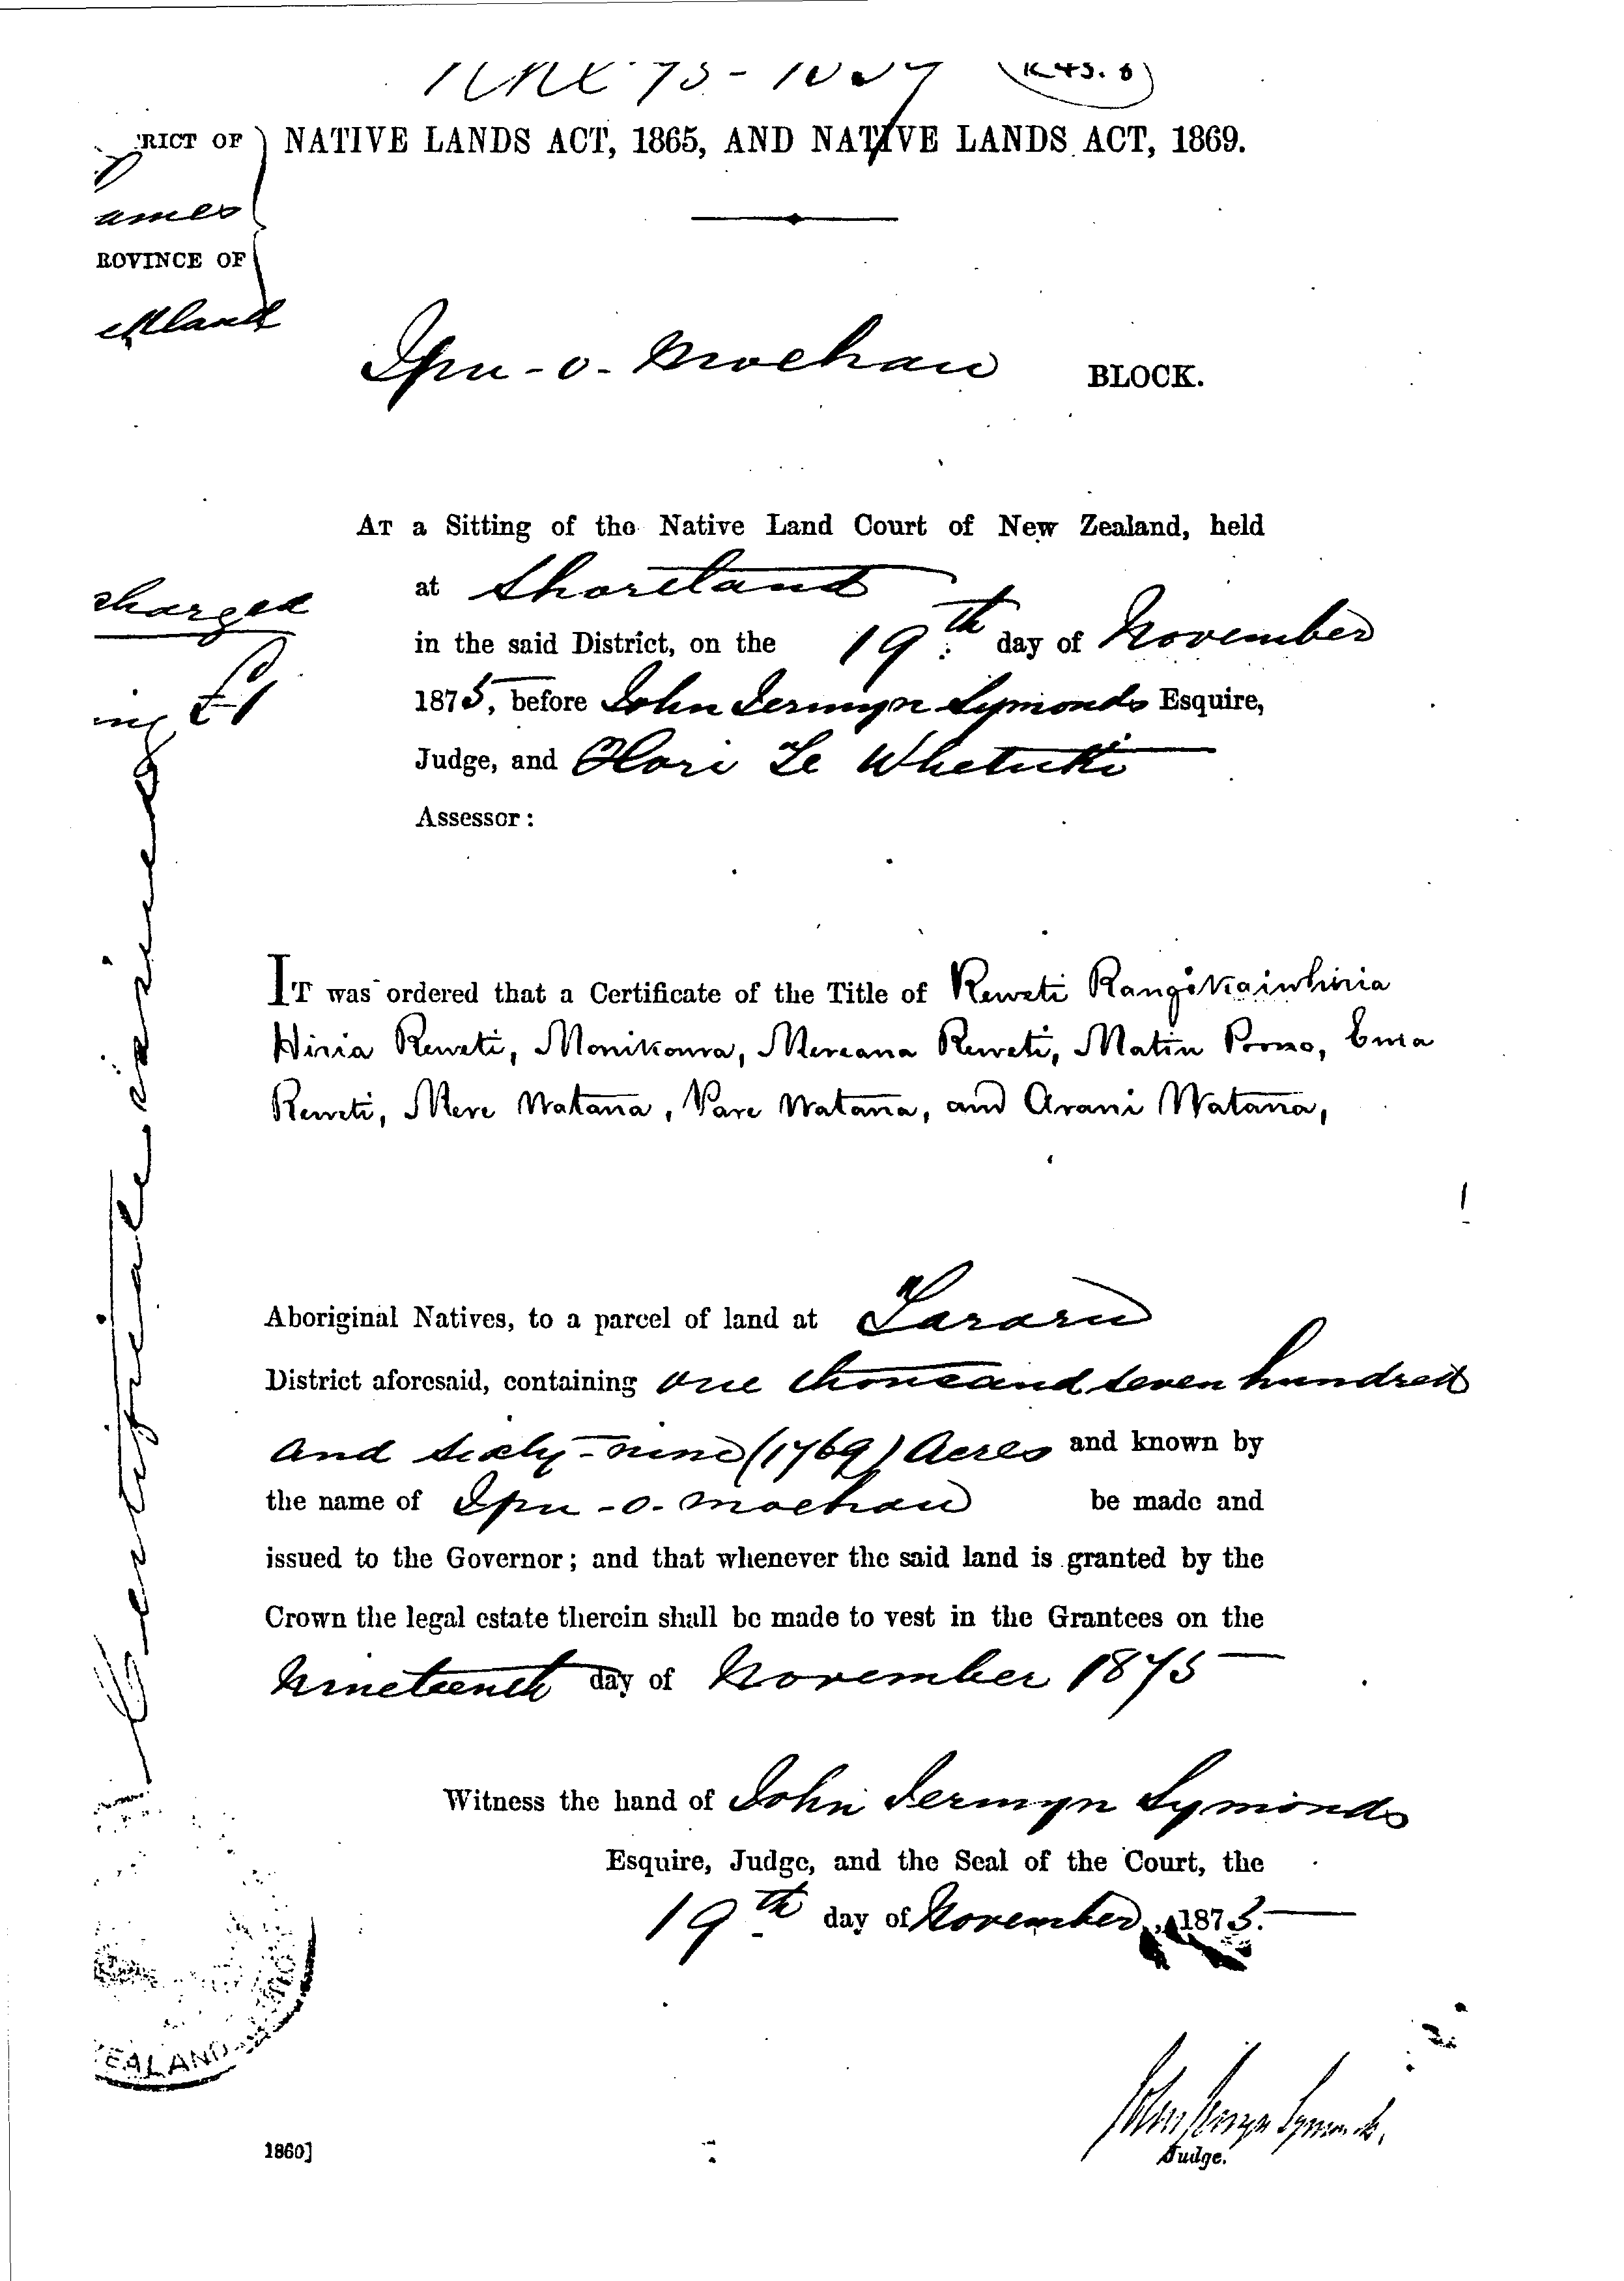 (R 43. 8)
NATIVE LANDS ACT, 1865, AND NATIVE LANDS ACT, 1869.
RICT OF
ames
ROVINCE OF
ckland
Ipu-o-Moehau BLOCK.
AT a Sitting of the Native Land Court of New Zealand, held
at Shortland
in the said District, on the 19th day of November
1875, before John Jermyn Symonds Esquire,
Judge, and Hori Te Whetuki
Assessor:
charged
£1
Certificate issued
IT was ordered that a Certificate of the Title of Reweti Rangikaiwhiria
Hiria Reweti, Monikoura, Mereana Reweti, Matiu Pono, Ema
Reweti, Mere Watana, Pare Watana, and Arani Watana,
Aboriginal Natives, to a parcel of land at Tararu
District aforesaid, containing one thousand seven hundred
and sixty-nine (1769) Acres and known by
the name of Ipu-o-Moehau be made and
issued to the Governor; and that whenever the said land is granted by the
Crown the legal estate therein shall be made to vest in the Grantees on the
Nineteenth day of November 1875
Witness the hand of John Jermyn Symonds
Esquire, Judge, and the Seal of the Court, the
19th day of November, 1875.
EALAND
John Jermyn Symonds.
Judge.
1860]